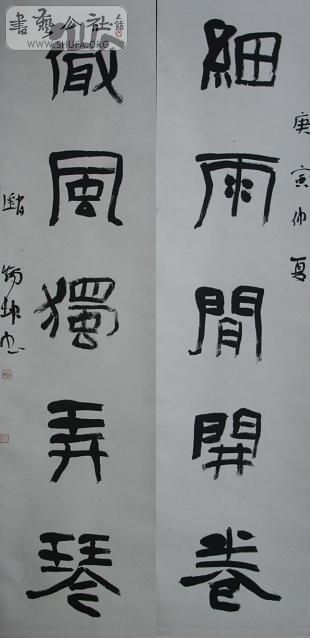 庚寅仲夏
細雨閒開卷
微風獨弄琴
書藝公社
WWW.SHUFA.ORG